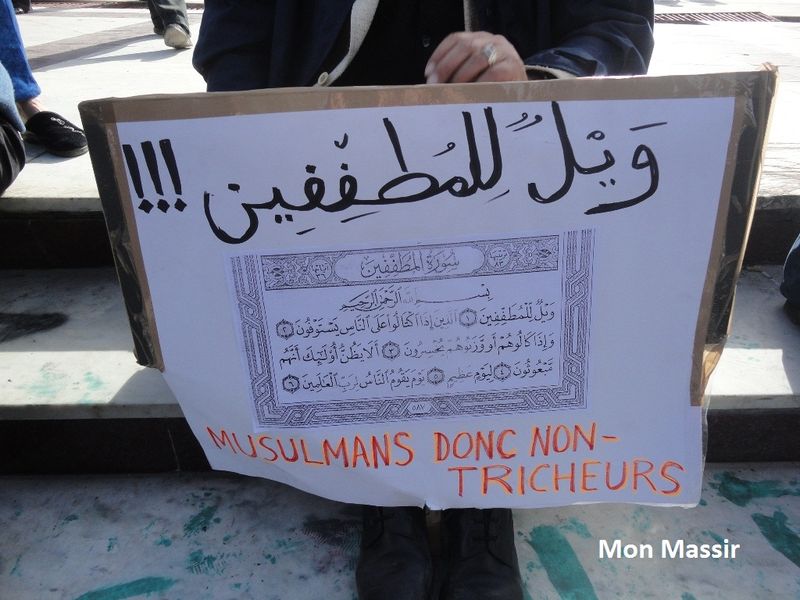 وَيْلٌ لِلْمُطَفِّفِين !!!
سورة المطففين
بِسْمِ اللَّهِ الرَّحْمَٰنِ الرَّحِيمِ
وَيْلٌ لِّلْمُطَفِّفِينَ ١ الَّذِينَ إِذَا اكْتَالُوا عَلَى النَّاسِ يَسْتَوْفُونَ ٢
وَإِذَا كَالُوهُمْ أَو وَّزَنُوهُمْ يُخْسِرُونَ ٣ أَلَا يَظُنُّ أُولَٰئِكَ أَنَّهُم
مَّبْعُوثُونَ ٤ لِيَوْمٍ عَظِيمٍ ٥ يَوْمَ يَقُومُ النَّاسُ لِرَبِّ الْعَالَمِينَ ٦
٥٨٧
MUSULMANS DONC NON-
TRICHEURS
Mon Massir